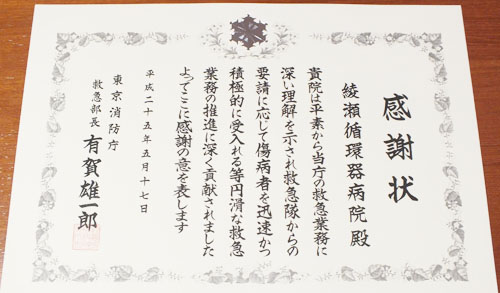 感謝状
綾瀬循環器病院殿
貴院は平素から当庁の救急業務に
深い理解を示され救急隊からの
要請に応じて傷病者を迅速かつ
積極的に受入れる等円滑な救急
業務の推進に深く貢献されました
よってここに感謝の意を表します
平成二十五年五月十七日
東京消防庁
救急部長 有賀雄一郎